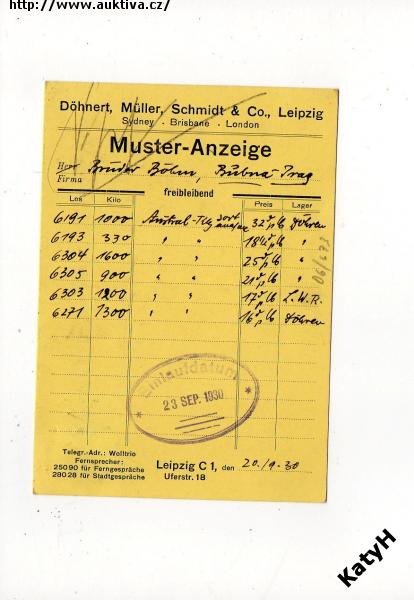 http://www.auktiva.cz/
Döhnert, Müller, Schmidt & Co., Leipzig
Sydney . Brisbane . London
Muster-Anzeige
Herr
Firma
Brüder Böhm, Bubna-Prag
freibleibend
Los Kilo Preis Lager
6191 1000 Austral- 32 Döhren
6193 330 " " 18½ "
6304 1600 " " 25 "
6305 900 " " 21 "
6303 1200 " " 17 L.W.R.
6271 1300 " " 16 Döhren
Einlaufdatum
23 SEP. 1930
Telegr.-Adr.: Wolltrio
Fernsprecher:
25090 für Ferngespräche
28028 für Stadtgespräche
Leipzig C1, den 20./9.30
Uferstr. 18
KatyH